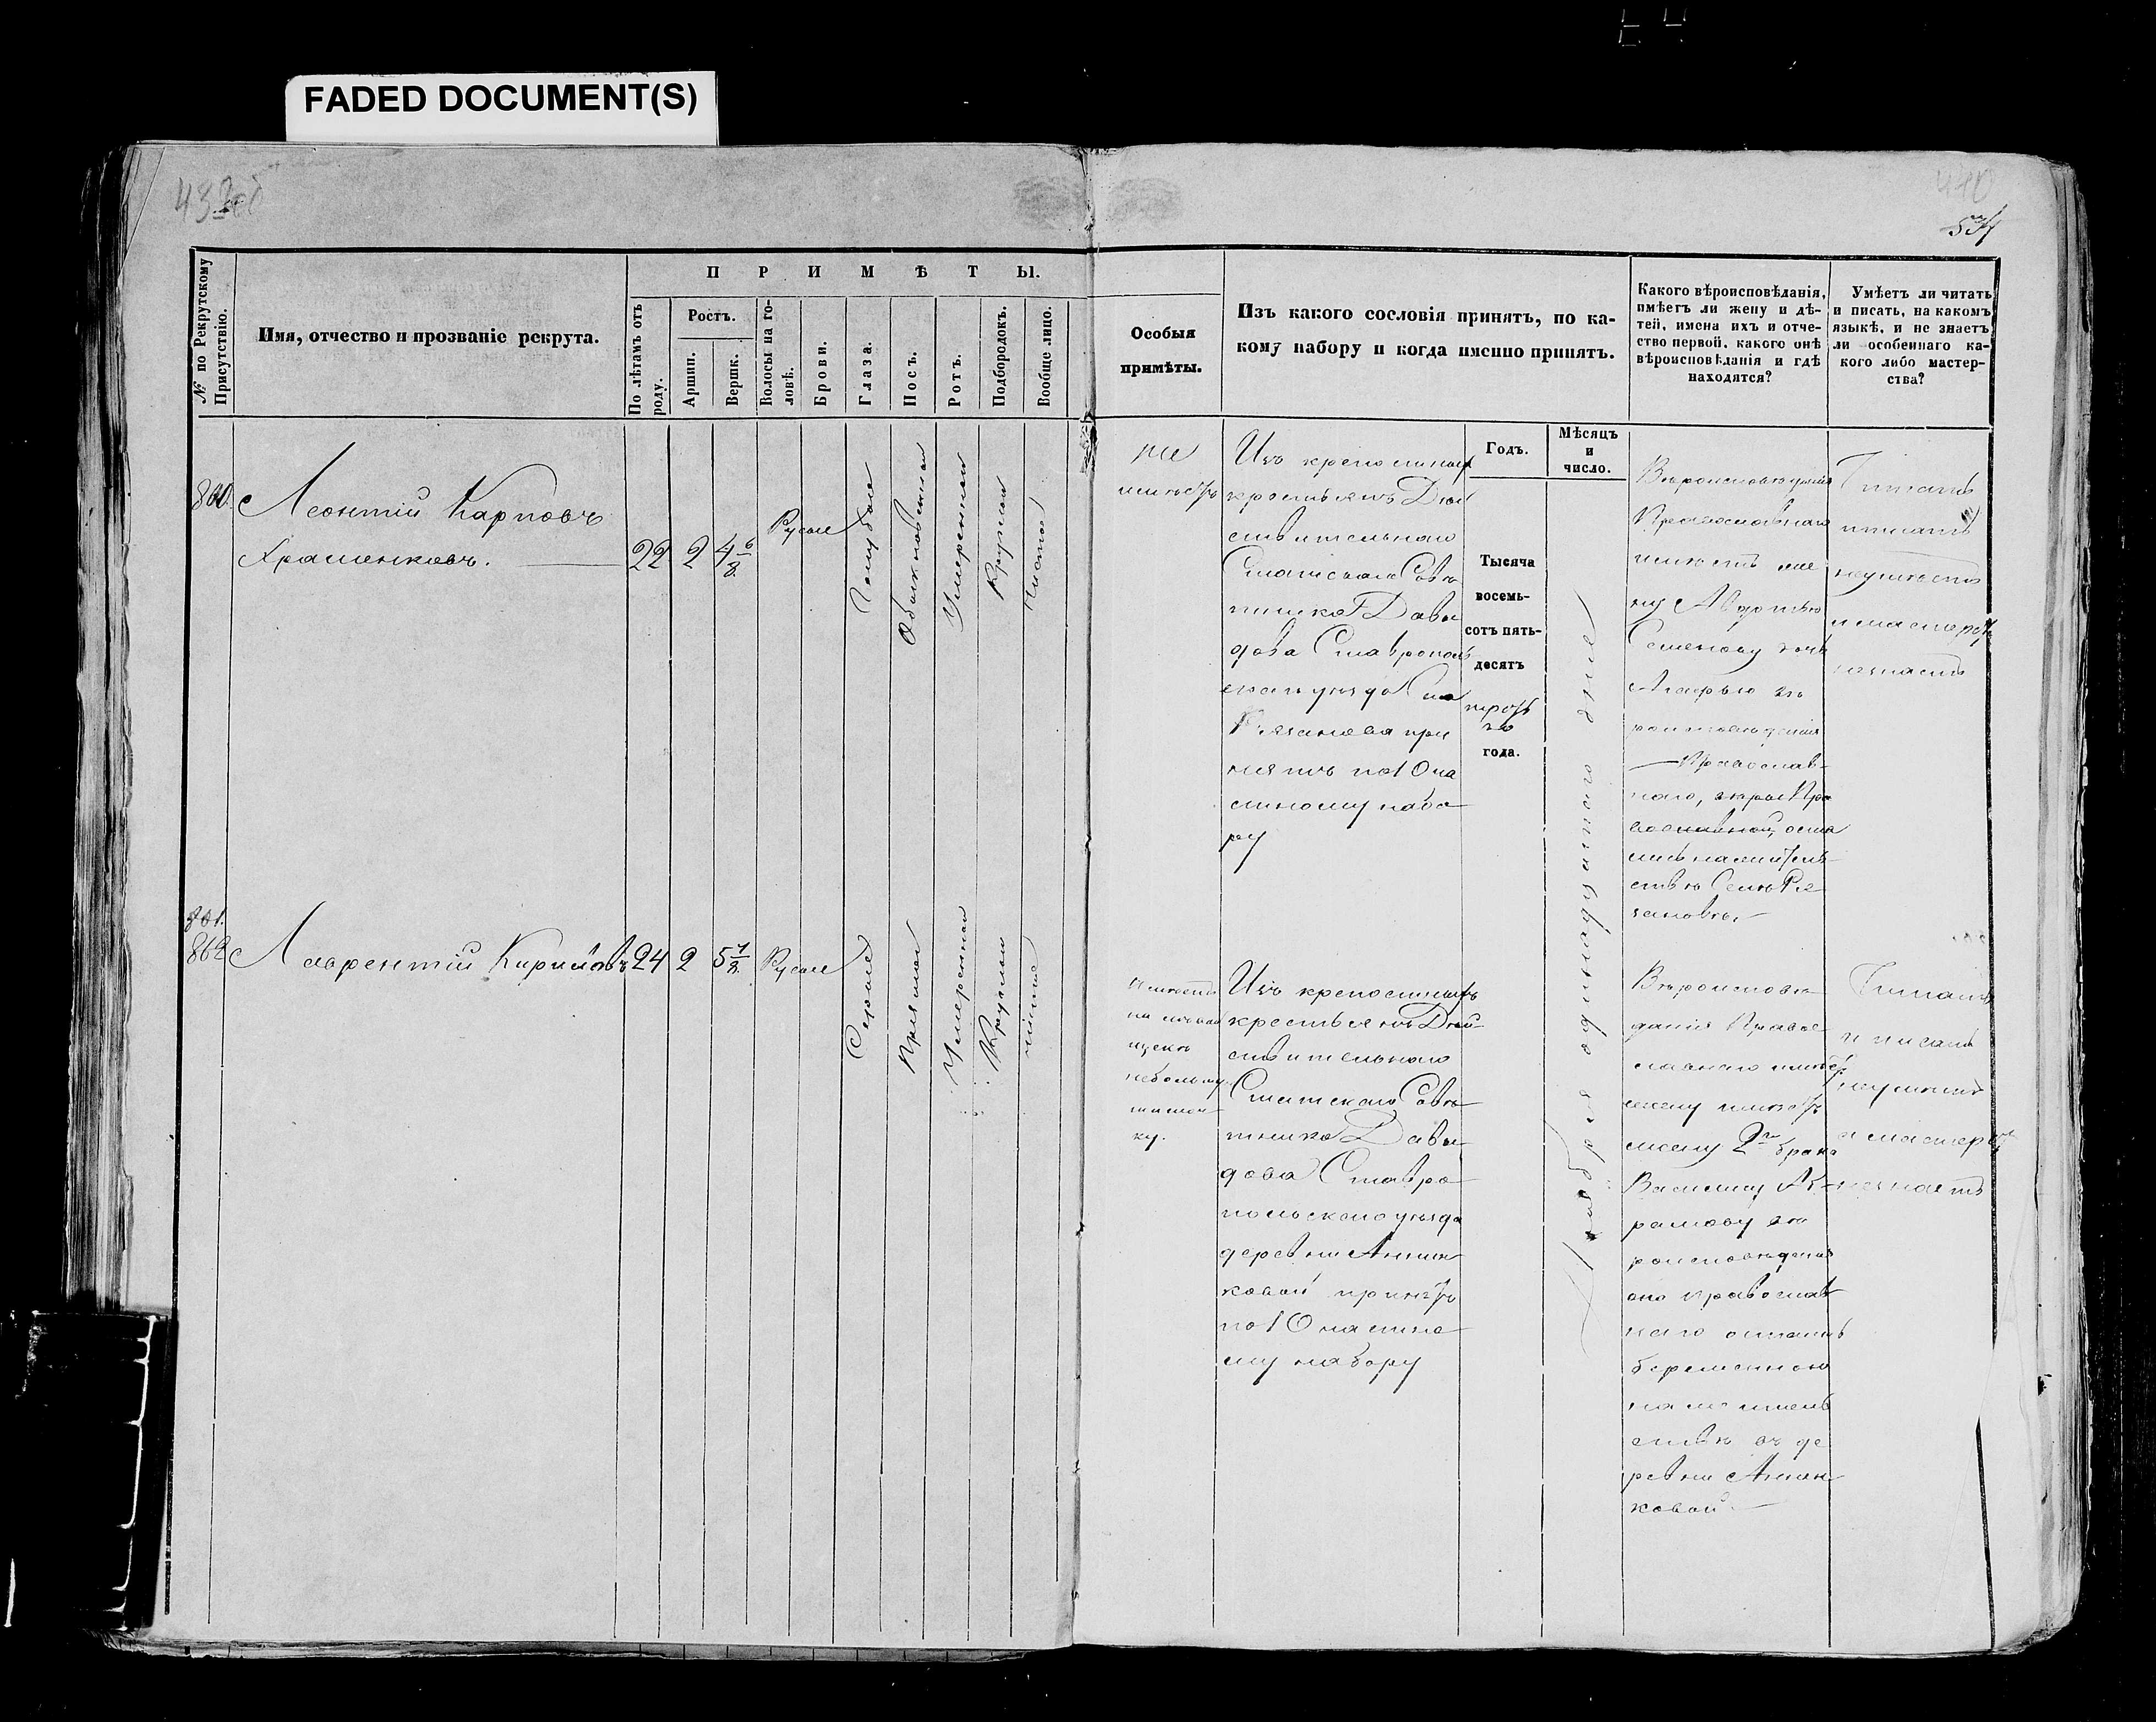 FADED DOCUMENT(S)
534
№ по Рекрутскому Присутствію.
Имя, отчество и прозваніе рекрута.
ПРИМѢТЫ.
По лѣтамъ отъ роду.
Ростъ.
Аршин.
Вершк.
Волосы на головѣ.
Брови.
Глаза.
Носъ.
Ротъ.
Подбородокъ.
Вообще лицо.
Особыя
примѣты.
Изъ какого сословія принятъ, по ка-
кому набору и когда именно принятъ.
Какого вѣроисповѣданія,
имѣетъ ли жену и дѣ-
тей, имена ихъ и отче-
ство первой, какого онѣ
вѣроисповѣданія и гдѣ
находятся?
Умѣетъ ли читать
и писать, на какомъ
языкѣ, и не знаетъ
ли особеннаго ка-
кого либо мастер-
ства?
Годъ.
Мѣсяцъ
и
число.
Леонтій Карповъ
Храменковъ.
22
2
4 6/8
Русые
Голубые
Обыкновенной
Умеренной
Круглой
Чистое
не
имѣетъ
Изъ крепостныхъ
крестьянъ Дѣй
ствительнаго
Статскаго Совѣ
тника Давы
дова Ставрополь
скаго уѣзда Села
Резанова при
нятъ по 10 ча
стному набо
ру
Тысяча
восемь-
сотъ пять-
десятъ
третьяго
года.
Ноября одинадцатаго дня
Вѣроисповѣданія
Православнаго
имѣетъ же
ну Авдотью
Семенову дочь
Агафью вѣ
роисповѣданія
Православ-
наго,
ствѣ Селѣ Ре
зановѣ.
Читать
писать
неумѣетъ
и мастерст.
незнаетъ
861.
862
Лаврентій Кириловъ
24
2
5 1/8
Русые
Серые
Прямой
Умеренной
Круглой
чистое
Имѣетъ
на левой
щекѣ
небольшую
ку.
Изъ крепостныхъ
крестьянъ Дѣй-
ствительнаго
Статскаго Совѣ
тника Давы
дова Ставро
польскаго уѣзда
деревни Аннен
ковой принятъ
по 10 частно
му набору
Вѣроисповѣ
данія Право
славнаго имѣетъ
жену имѣетъ
жену 2го брака
Василису Аб
рамову вѣ
роисповѣданія
она православ
наго осталась
беременною
на житель
ствѣ въ де
ревни Аннен
ковой
Читать
и писать
неумѣетъ
а мастерст.
незнаетъ